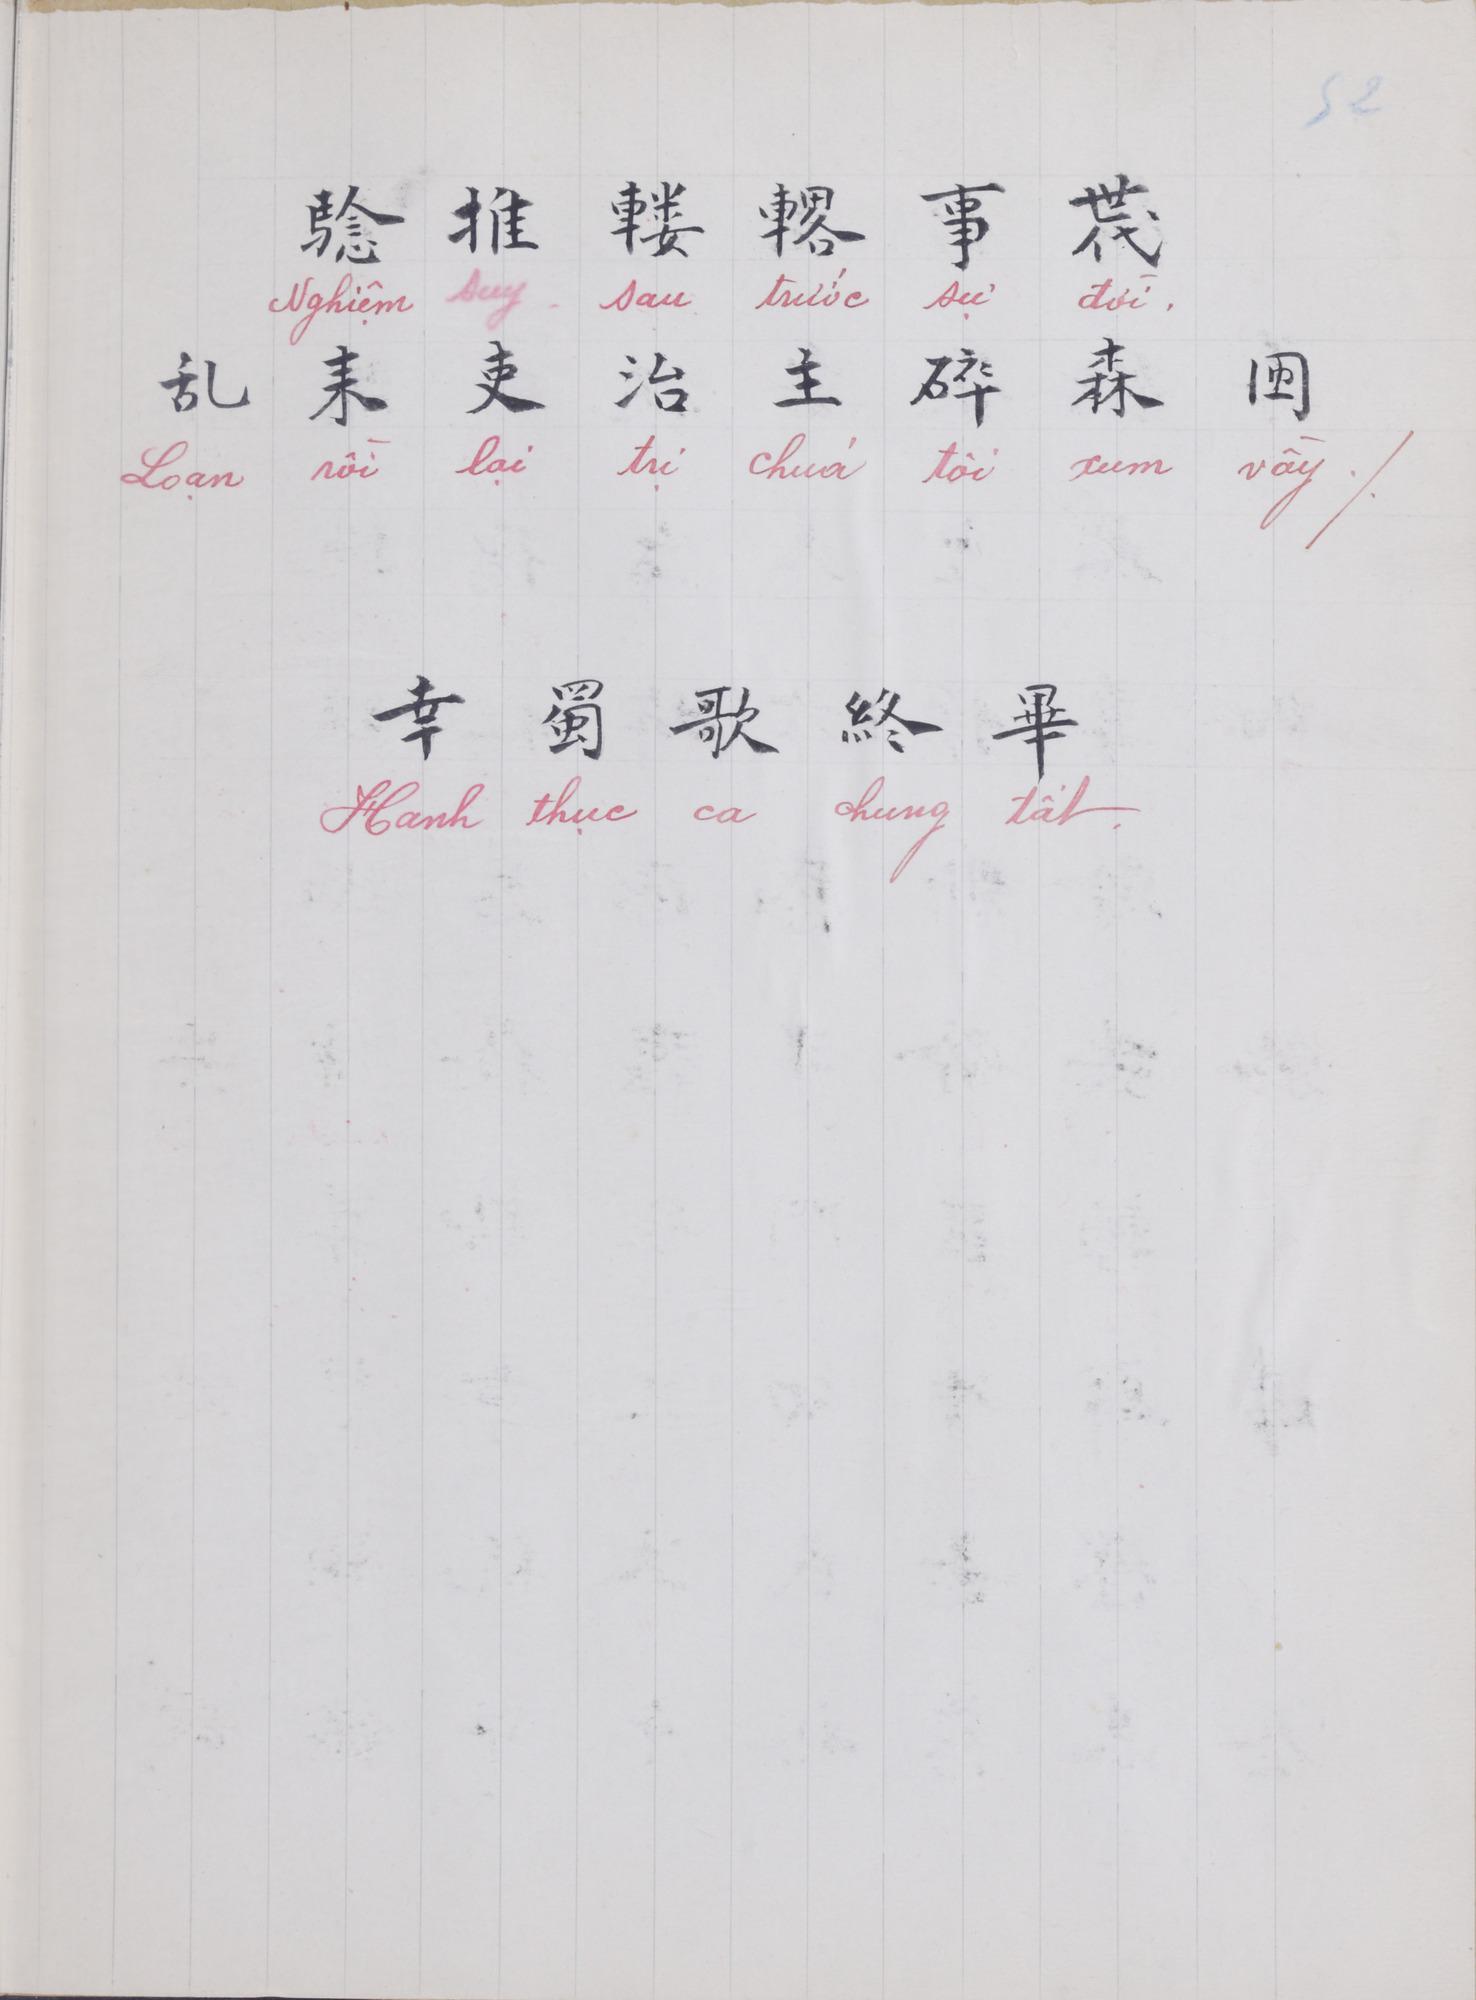 52
騐 推 𨍦 𨎠 事 𫯳
Nghiệm suy sau trước sự đời.
乱 耒 吏 治 主 碎 森 囲
Loạn rồi lại trị chuá tôi xum vầy ./.
幸 蜀 歌 終 畢
Hanh thục ca chung tất.